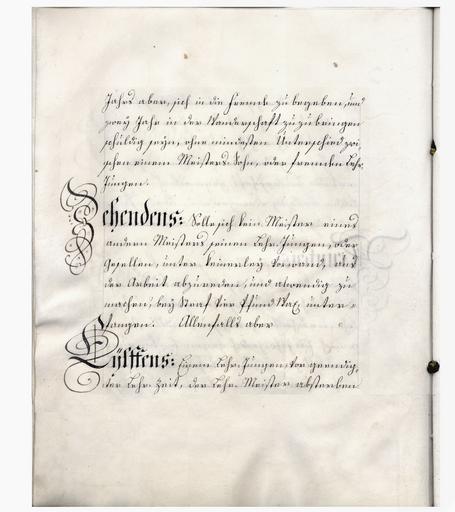 Jahrs aber, sich in die Fremde zu begeben, und
zweÿ Jahr in der Wanderschaft zuzubringen
schuldig seÿn, ohne mindesten Unterschied zwi-
schen einem Meisters Sohn, oder fremden Lehr-
Jungen.
Zehendens: Solle sich kein Meister eines
andern Meisters seinen Lehr-Jungen, oder
Gesellen, unter keinerleÿ Vorwand, aus
der Arbeit abzureden, und abwendig zu
machen, beÿ Straf vier Pfund Wax, unter-
fangen. Allenfalls aber
Eÿlfftens: Einem Lehr-Jungen, vor geendig-
ter Lehr-Zeit, der Lehr-Meister absterben